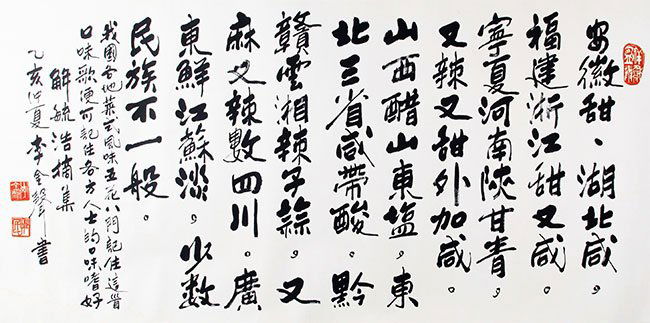 安徽甜、湖北咸，
福建浙江甜又咸。
寧夏河南陝甘青，
又辣又甜外加咸。
山西醋山東塩，東
北三省咸帶酸。黔
贛雲湘辣子蒜，又
麻又辣數四川。廣
東鮮江蘇淡，少數
民族不一般。
我國各地菜式風味五花八門記住這首
口味歌便可記住各方人士的口味嗜好
解毓浩摘集
乙亥仲夏李金聲書